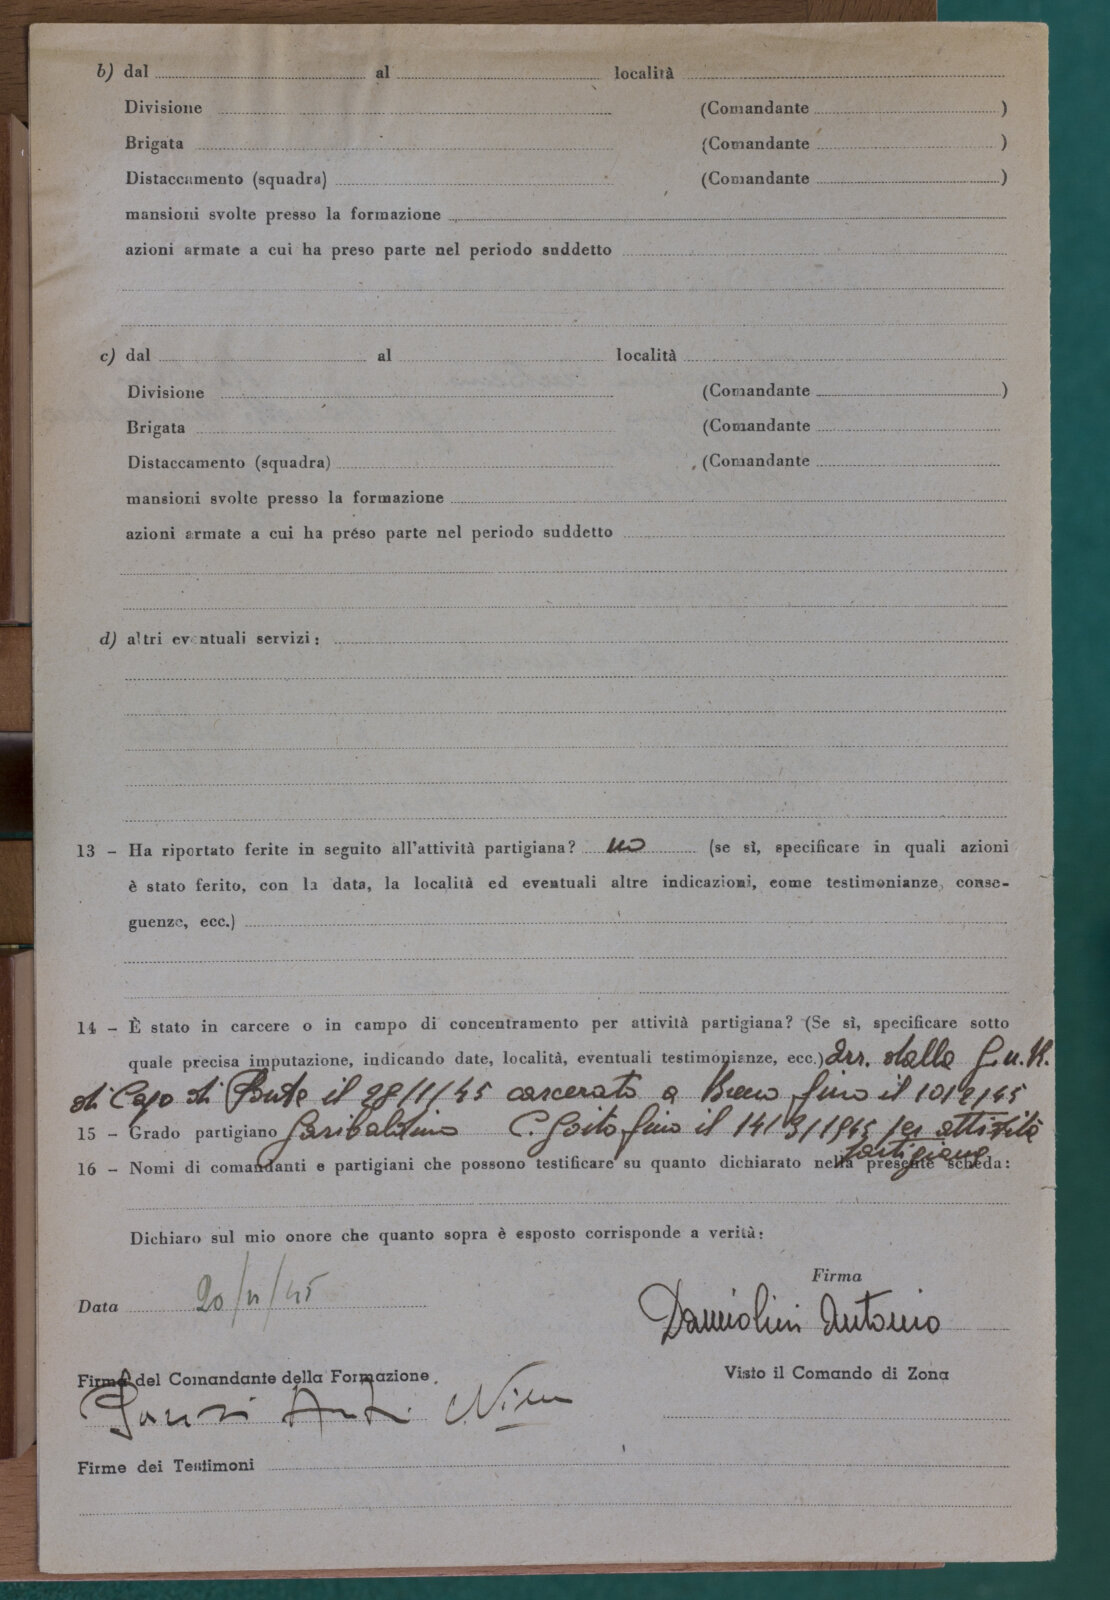 b) dal al località
Divisione (Comandante )
Brigata (Comandante )
Distaccamento (squadra) (Comandante )
mansioni svolte presso la formazione
azioni armate a cui ha preso parte nel periodo suddetto
c) dal al località
Divisione (Comandante )
Brigata (Comandante
Distaccamento (squadra) (Comandante
mansioni svolte presso la formazione
azioni armate a cui ha preso parte nel periodo suddetto
d) altri eventuali servizi:
13 - Ha riportato ferite in seguito all'attività partigiana? no (se sì, specificare in quali azioni
è stato ferito, con la data, la località ed eventuali altre indicazioni, come testimonianze, conse-
guenze, ecc.)
14 - È stato in carcere o in campo di concentramento per attività partigiana? (Se sì, specificare sotto
quale precisa imputazione, indicando date, località, eventuali testimonianze, ecc.) Arr. dalla G.N.R.
di Capo di Ponte il 28/1/45 carcerato a Breno fino il 10/2/45
15 - Grado partigiano Garibaldino C. Goito fino il 14/3/1945 per attività
partigiana
16 - Nomi di comandanti e partigiani che possono testificare su quanto dichiarato nella presente scheda:
Dichiaro sul mio onore che quanto sopra è esposto corrisponde a verità:
Firma
Data 20/11/45 Damiolini Antonio
Firma del Comandante della Formazione Visto il Comando di Zona
Firme dei Testimoni